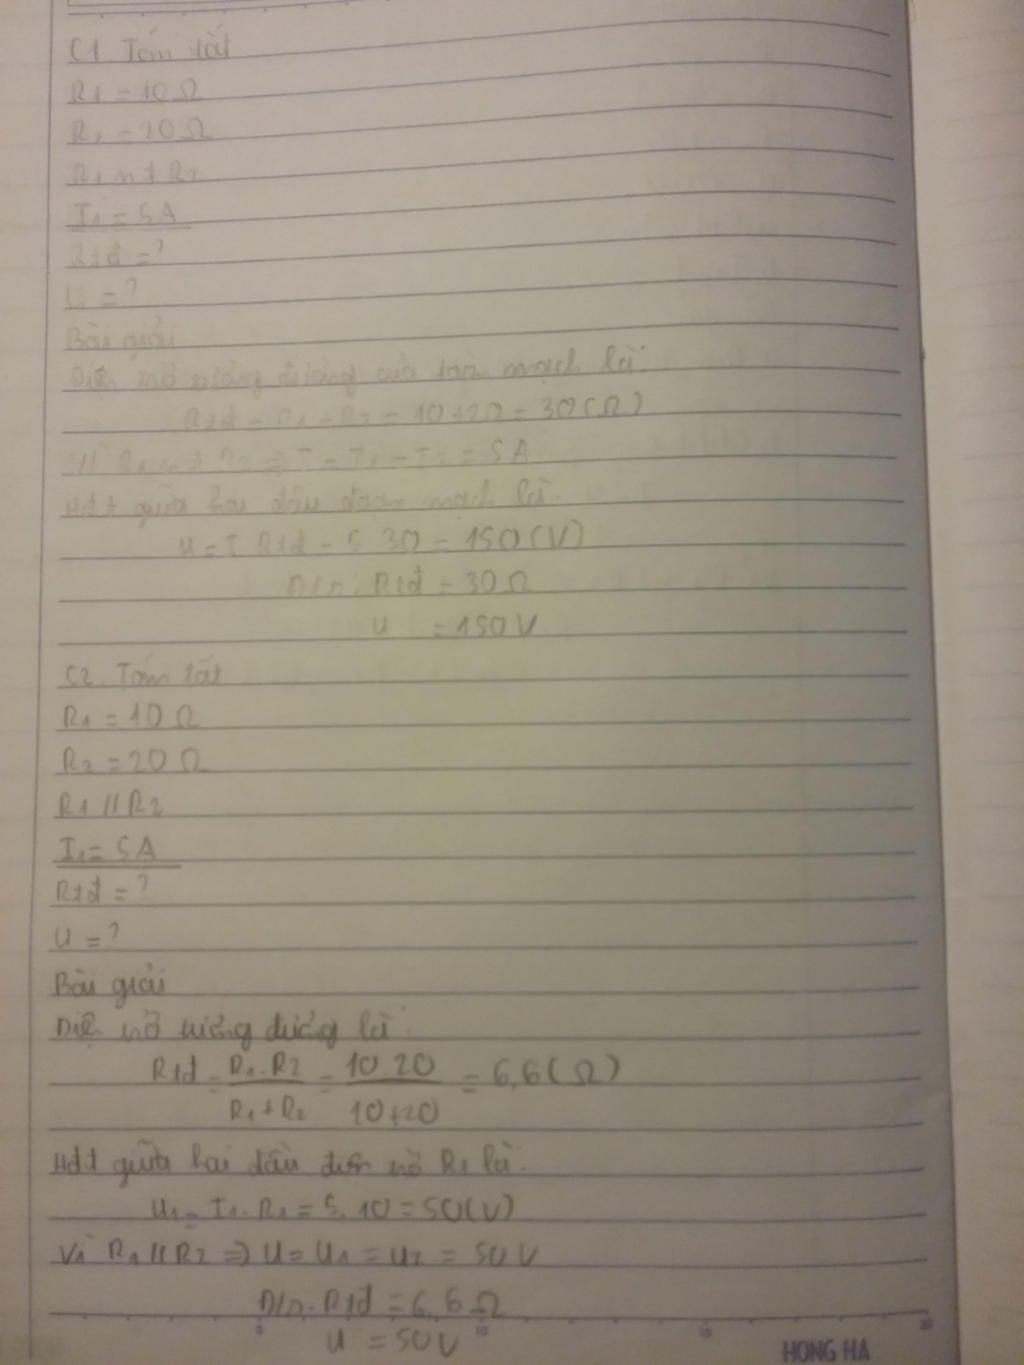 C1. Tóm tắt
R1 = 10 Ω
R2 = 20 Ω
R1 nt R2
I1 = 5A
Rtđ = ?
U = ?
Bài giải
Điện trở tương đương của toàn mạch là:
Rtđ = R1 + R2 = 10 + 20 = 30 (Ω)
Vì R1 nt R2 => I = I1 = I2 = 5A
Hđt giữa hai đầu đoạn mạch là:
U = I. Rtđ = 5. 30 = 150 (V)
Đ/s: Rtđ = 30 Ω
U = 150V
C2. Tóm tắt
R1 = 10 Ω
R2 = 20 Ω
R1 // R2
I1 = 5A
Rtđ = ?
U = ?
Bài giải
Điện trở tương đương là:
Rtđ = R1.R2 / R1+R2 = 10.20 / 10+20 = 6,6 (Ω)
Hđt giữa hai đầu điện trở R1 là:
U1 = I1. R1 = 5. 10 = 50 (V)
Vì R1 // R2 => U = U1 = U2 = 50V
Đ/s: Rtđ = 6,6 Ω
U = 50V
5 10 15 20
HONG HA